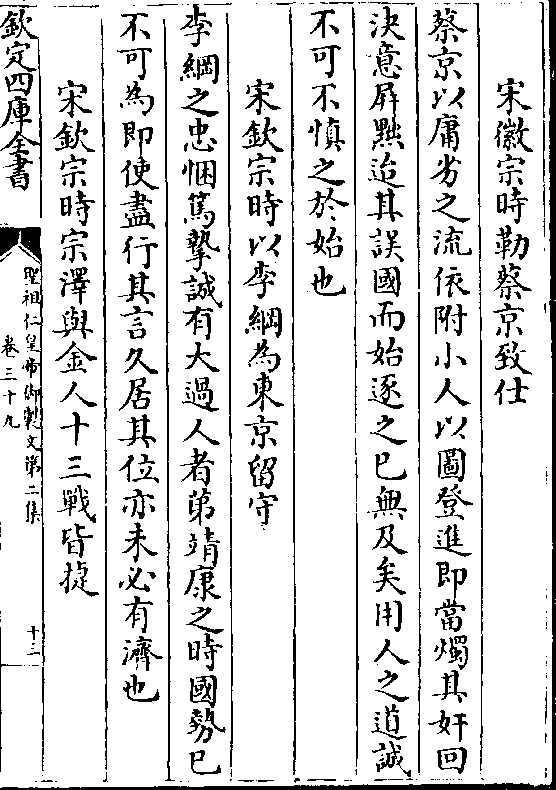 宋徽宗時勒蔡京致仕
蔡京以庸劣之流依附小人以圖登進即當燭其奸回
決意屏黜迨其誤國而始逐之已無及矣用人之道誠
不可不慎之於始也
宋欽宗時以李綱為東京留守
李綱之忠悃篤摯誠有大過人者第靖康之時國勢已
不可為即使盡行其言久居其位亦未必有濟也
宋欽宗時宗澤與金人十三戰皆捷
欽定四庫全書
聖祖仁皇帝御製文第二集
卷三十九
十三